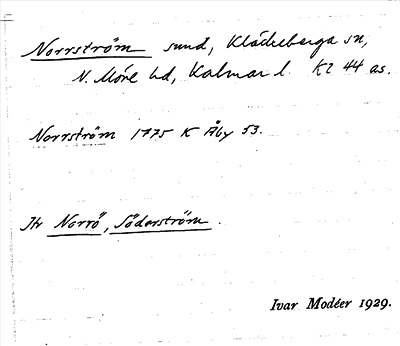 Norrström sund, Kläckeberga sn,
N. Möre hd, Kalmar l. Kl 44 as.
Norrström 1775 K Åby 53.
Jfr Norrö, Söderström.
Ivar Modéer 1929.